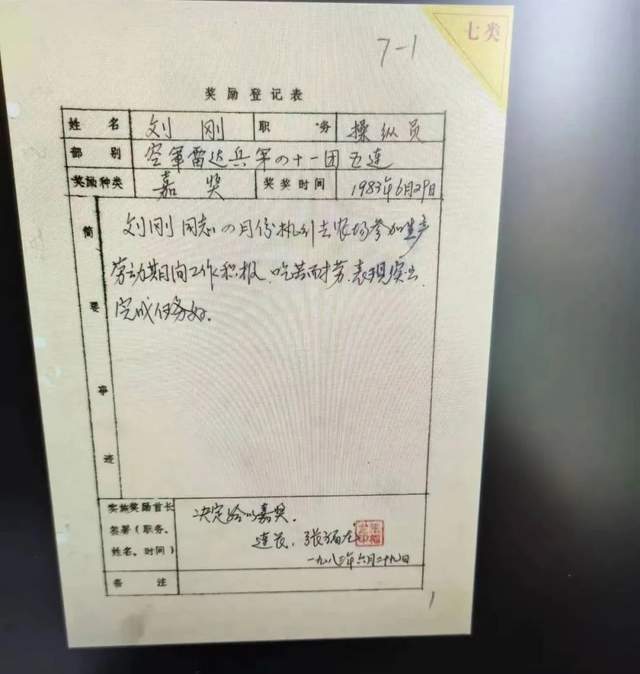 七类
7-1
奖励登记表
姓名 刘刚 职务 操纵员
部别 空军雷达兵军の十一团五连
奖励种类 嘉奖 奖奖时间 1983年6月29日
简要事迹
刘刚同志の月份执行去农场参加生产
劳动期间工作积极、吃苦而才劳、表现突出、
完成任务好。
实施奖励首长
签署(职务、
姓名、时间)
决定给以嘉奖。
连长:张
一九八三年六月二十九日
备注
1